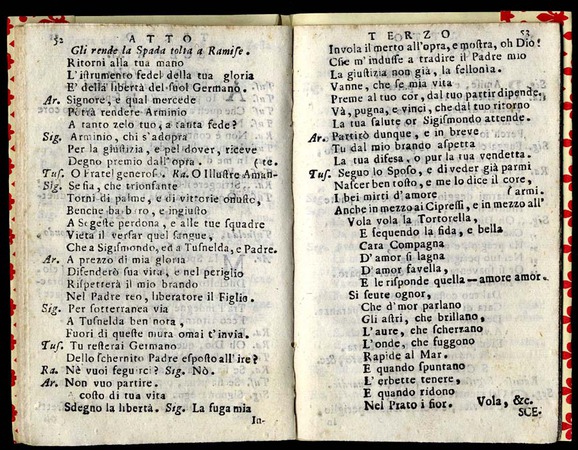 52 ATTO
Gli rende la Spada tolta a Ramise.
Ritorni alla tua mano
L'istrumento fedel della tua gloria
E' della libertà del suol Germano.
Ar. Signore, e qual mercede
Potrà rendere Arminio
A tanto zelo tuo, a tanta fede?
Sig. Arminio, chi s'adopra
Per la giustizia, e pel dover, riceve
Degno premio dall'opra. (te.
Tus. O Fratel generoso. Ra. O Illustre Aman-
Sig. Se fia, che trionfante
Torni di palme, e di vittorie onusto,
Benche barbaro, e ingiusto
A Segeste perdona, e alle tue squadre
Vieta il versar quel sangue,
Che a Sigismondo, ed a Tusnelda, e Padre.
Ar. A prezzo di mia gloria
Difenderò sua vita, e nel periglio
Rispetterà il mio brando
Nel Padre reo, liberatore il Figlio.
Sig. Per sotterranea via
A Tusnelda ben nota,
Fuori di queste mura omai t'invia.
Tus. Tu resterai Germano
Dello schernito Padre esposto all'ire?
Ra. Nè vuoi seguirci? Sig. Nò.
Ar. Non vuo partire.
A costo di tua vita
Sdegno la libertà. Sig. La fuga mia
In-
TERZO 53
Invola il merto all'opra, e mostra, oh Dio!
Che m'indusse a tradire il Padre mio
La giustizia non già, la fellonia.
Vanne, che se mia vita
Preme al tuo cor, dal tuo partir dipende:
Và, pugna, e vinci, che dal tuo ritorno
La tua salute or Sigismondo attende.
Ar. Partirò dunque, e in breve
Tu dal mio brando aspetta
La tua difesa, o pur la tua vendetta.
Tus. Seguo lo Sposo, e di veder già parmi
Nascer ben tosto, e me lo dice il core,
I bei mirti d'amore (armi.
Anche in mezzo ai Cipressi, e in mezzo all'
Vola vola la Tortorella,
E seguendo la fida, e bella
Cara Compagna
D'amor si lagna
D'amor favella,
E le risponde quella — amore amor.
Si sente ognor,
Che d'mor parlano
Gli astri, che brillano,
L'aure, che scherzano
L'onde, che fuggono
Rapide al Mar.
E quando spuntano
L'erbette tenere,
E quando ridono
Nel Prato i fior. Vola, &c.
SCE-